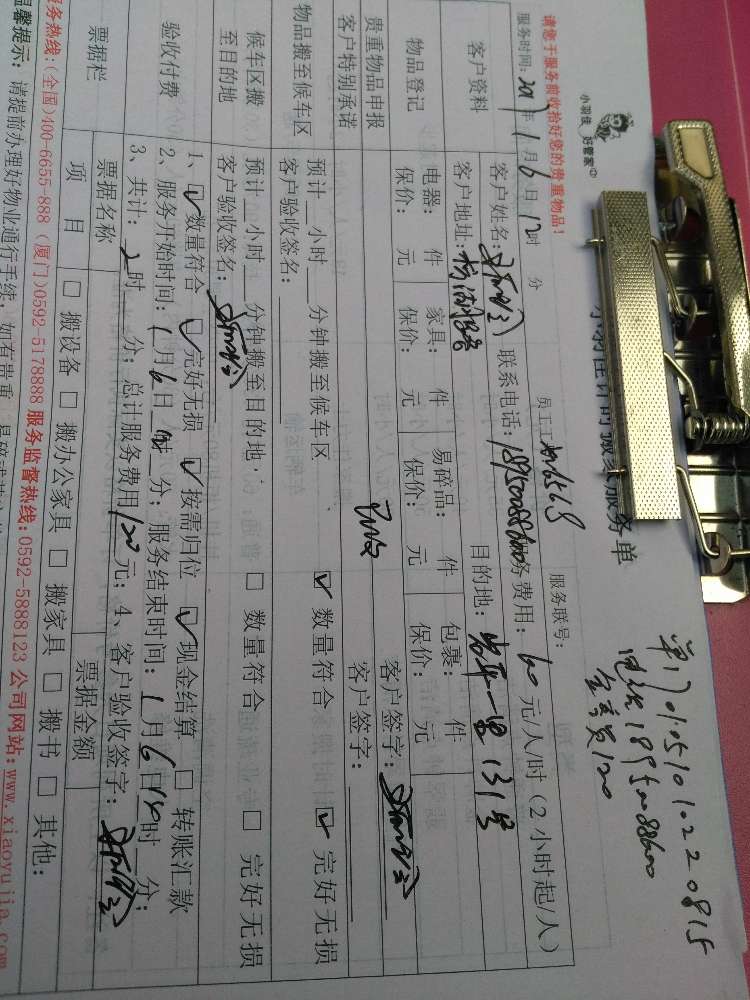 小羽佳 好管家
时搬家服务单
单170105101022 0815
电话18950088600
金葵员120
请您于服务前收拾好您的贵重物品！
服务时间：2017年1月6日12时 分
员工工号
服务联号：
客户资料
客户姓名：
联系电话：18950088600
服务费用：60元/人/时（2小时起/人）
客户地址：
目的地：岩平一里131号
物品登记
电器： 件 家具： 件 易碎品： 件 包裹： 件
保价： 元 保价： 元 保价： 元 保价： 元
贵重物品申报 客户签字：
客户特别承诺 客户签字：
物品搬至候车区
预计 小时 分钟搬至候车区 ☑ 数量符合 ☑ 完好无损
客户验收签名：
候车区搬至目的地
预计 小时 分钟搬至目的地. □ 数量符合 □ 完好无损
客户验收签名：
验收付费
1、☑数量符合 ☑完好无损 ☑按需归位 ☑现金结算 □ 转账汇款
2、服务开始时间：1月6日 时 分；服务结束时间：1月6日14时 分；
3、共计：2时 分；总计服务费用120元；4、客户验收签字：
票据栏
票据名称 票据金额
项 目 □ 搬设备 □ 搬办公家具 □ 搬家具 □ 搬书 □ 其他：
服务热线：(全国)400-6655-888（厦门)0592-5178888 服务监督热线：0592-5888123 公司网站：www.xiaoyujia.com
温馨提示：请提前办理好物业通行手续，如有贵重